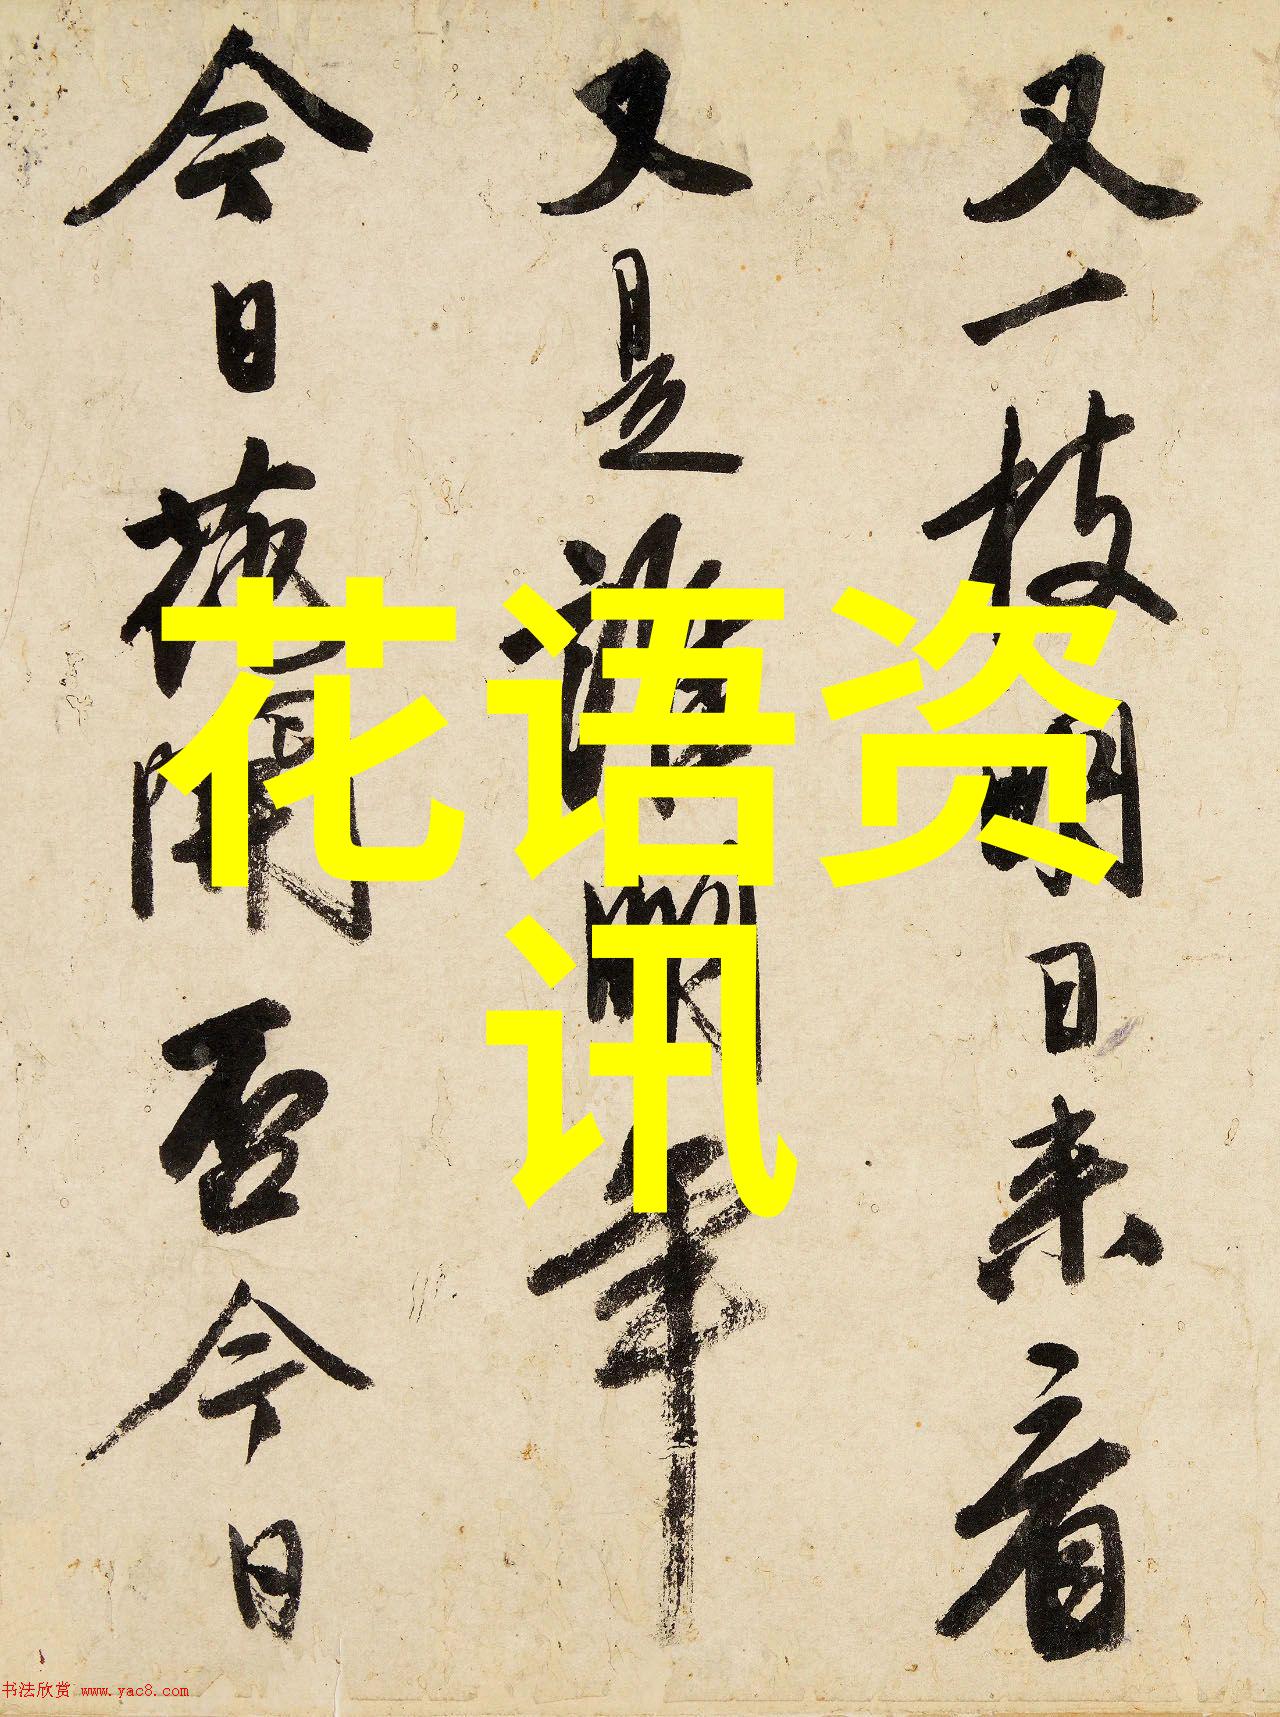 又一枝明日来看
又是誰明年
今日花開否今日
花语资
讯
书法欣赏 www.yac8.com